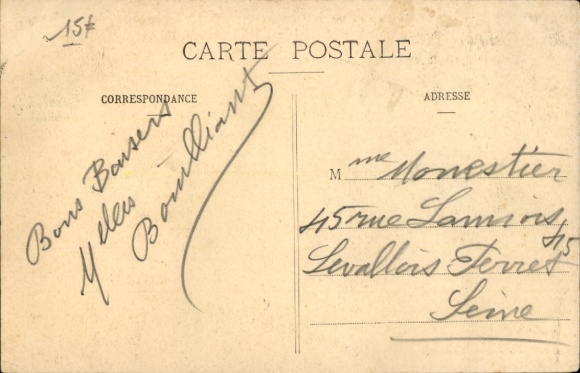 15f
CARTE POSTALE
CORRESPONDANCE
Bons Baisers
Melles
Bouilliant
ADRESSE
Mme Monestier
45 rue Lannois 45
Levallois Perret
Seine